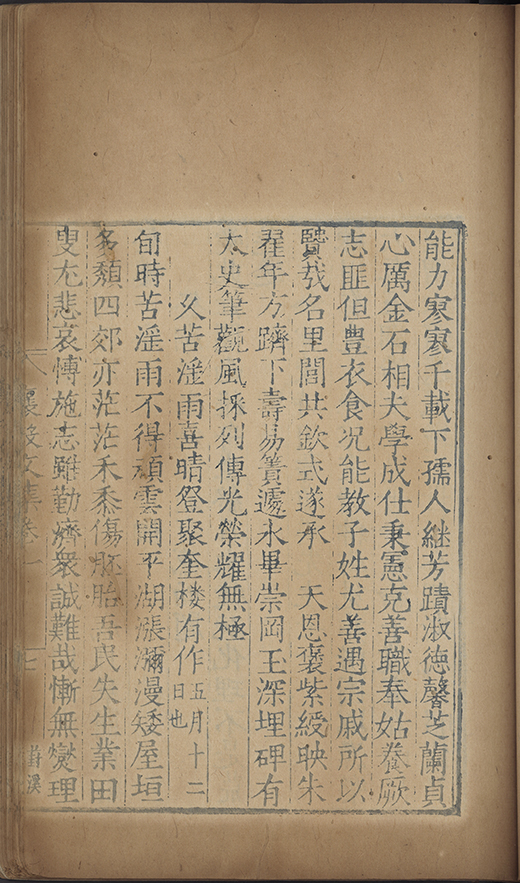 能力寥寥千載下孺人継芳蹟淑徳馨芝蘭貞
心厲金石相夫學成仕秉憲克善職奉姑養厥
志匪但豊衣食况能教子姓尤善遇宗戚所以
賢㦲名里閭共欽式遂承　天恩褒紫綬映朱
翟年方躋下壽易簀遽永畢崇岡玉深埋碑有
太史筆觀風採列傳光榮耀無極
久苦滛雨喜晴登聚奎楼有作五月十二日也
旬時苦滛雨不得頑雲開平湖漲瀰漫矮屋垣
多頽四郊亦茫茫禾黍傷胚胎吾民失生業田
叟尢悲哀愽施志雖勤濟衆誠難哉慚無爕理
襄毅文集卷一
七